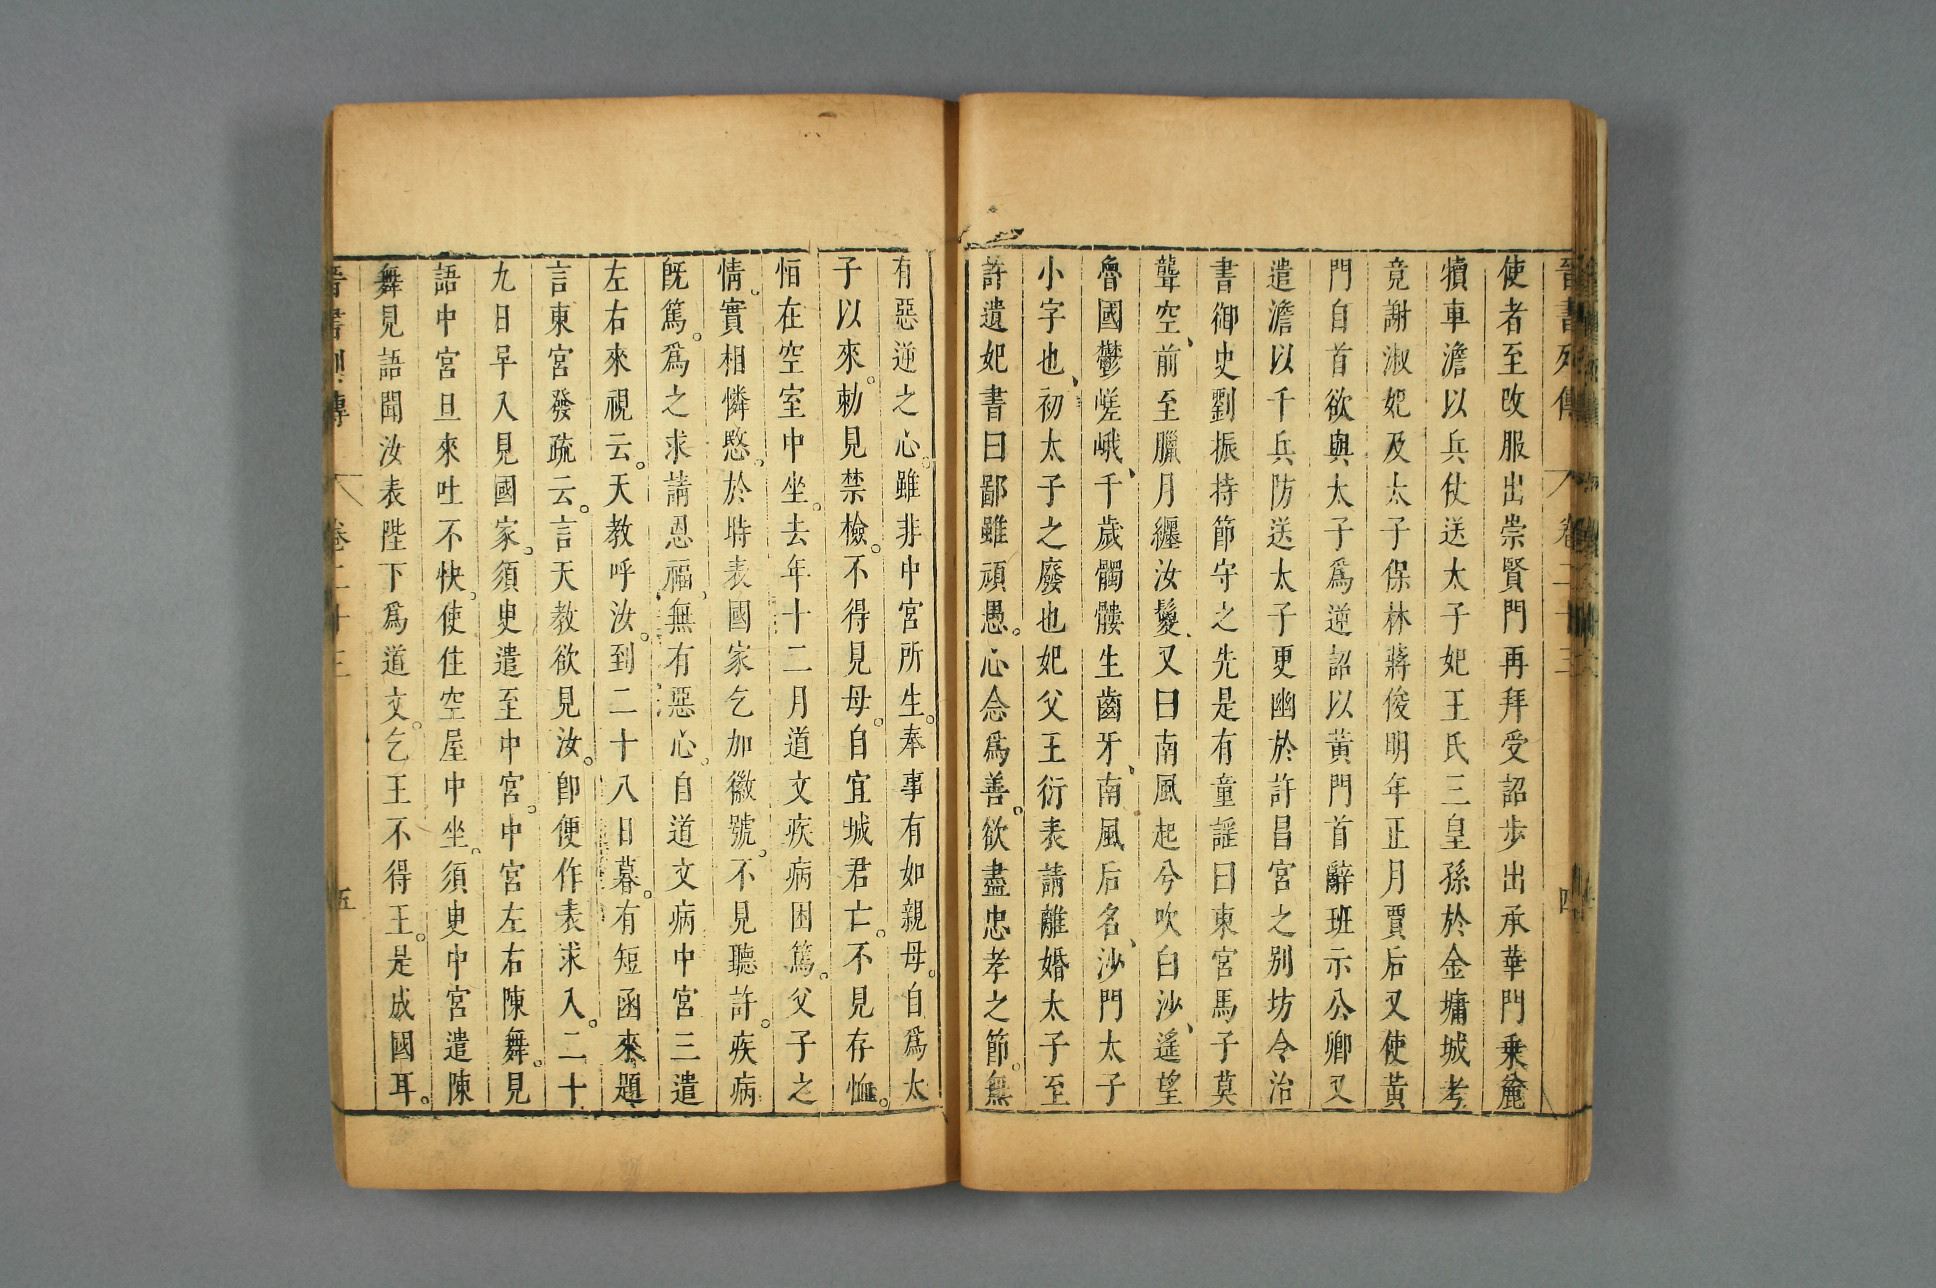 晉書列傳 卷二十三 四
使者至改服出崇賢門再拜受詔步出承華門乗麄
犢車澹以兵仗送太子妃王氏三皇孫於金墉城考
竟謝淑妃及太子保林蔣俊明年正月賈后又使黃
門自首欲與太子爲逆詔以黃門首辭班示公卿又
遣澹以千兵防送太子更幽於許昌宮之别坊令治
書御史劉振持節守之先是有童謡曰東宮馬子莫
聾空、前至臘月纏汝鬉、又曰南風起兮吹白沙、遥望
魯國鬱嵯峨、千歲髑髏生齒牙、南風后名、沙門太子
小字也、初太子之廢也妃父王衍表請離婚太子至
許遺妃書曰鄙雖頑愚。心念爲善。欲盡忠孝之節。無
有惡逆之心。雖非中宮所生。奉事有如親母。自爲太
子以來。勅見禁檢。不得見母。自宜城君亡。不見存恤。
恒在空室中坐。去年十二月道文疾病困篤。父子之
情。實相憐愍。於時表國家乞加徽號。不見聽許。疾病
旣篤。爲之求請恩福。無有惡心。自道文病中宮三遣
左右來視云。天教呼汝。到二十八日暮。有短函來題
言東宮發疏云。言天教欲見汝。卽便作表求入。二十
九日早入見國家。須臾遣至中宮。中宮左右陳舞。見
語中宮旦來吐不快。使住空屋中坐。須臾中宮遣陳
舞見語聞汝表陛下爲道文。乞王不得王。是成國耳。
晉書列傳 卷二十三 五